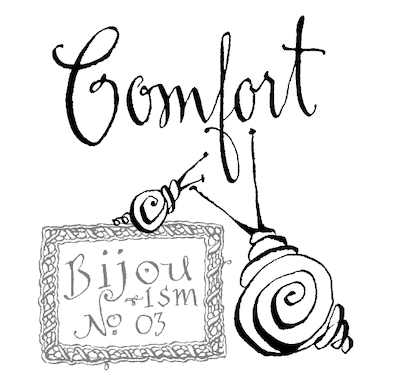 Comfort
Bijou
-ism
No 03